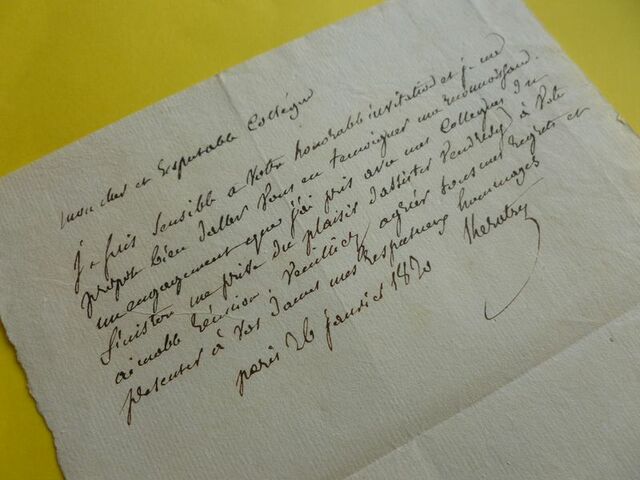 mon cher et respectable Collégue
je suis sensible a votre honorable invitation et je me
propose bien d'aller vous en temoigner ma reconnoissance.
un engagement que j'ai pris avec mes Collegues du
finistere me prive du plaisir d'assister vendredy à votre
aimable réunion. veuillez agréer tous mes regrets et
presenter à vos dames mes respectueux hommages
Keratry
paris 26 janvier 1820